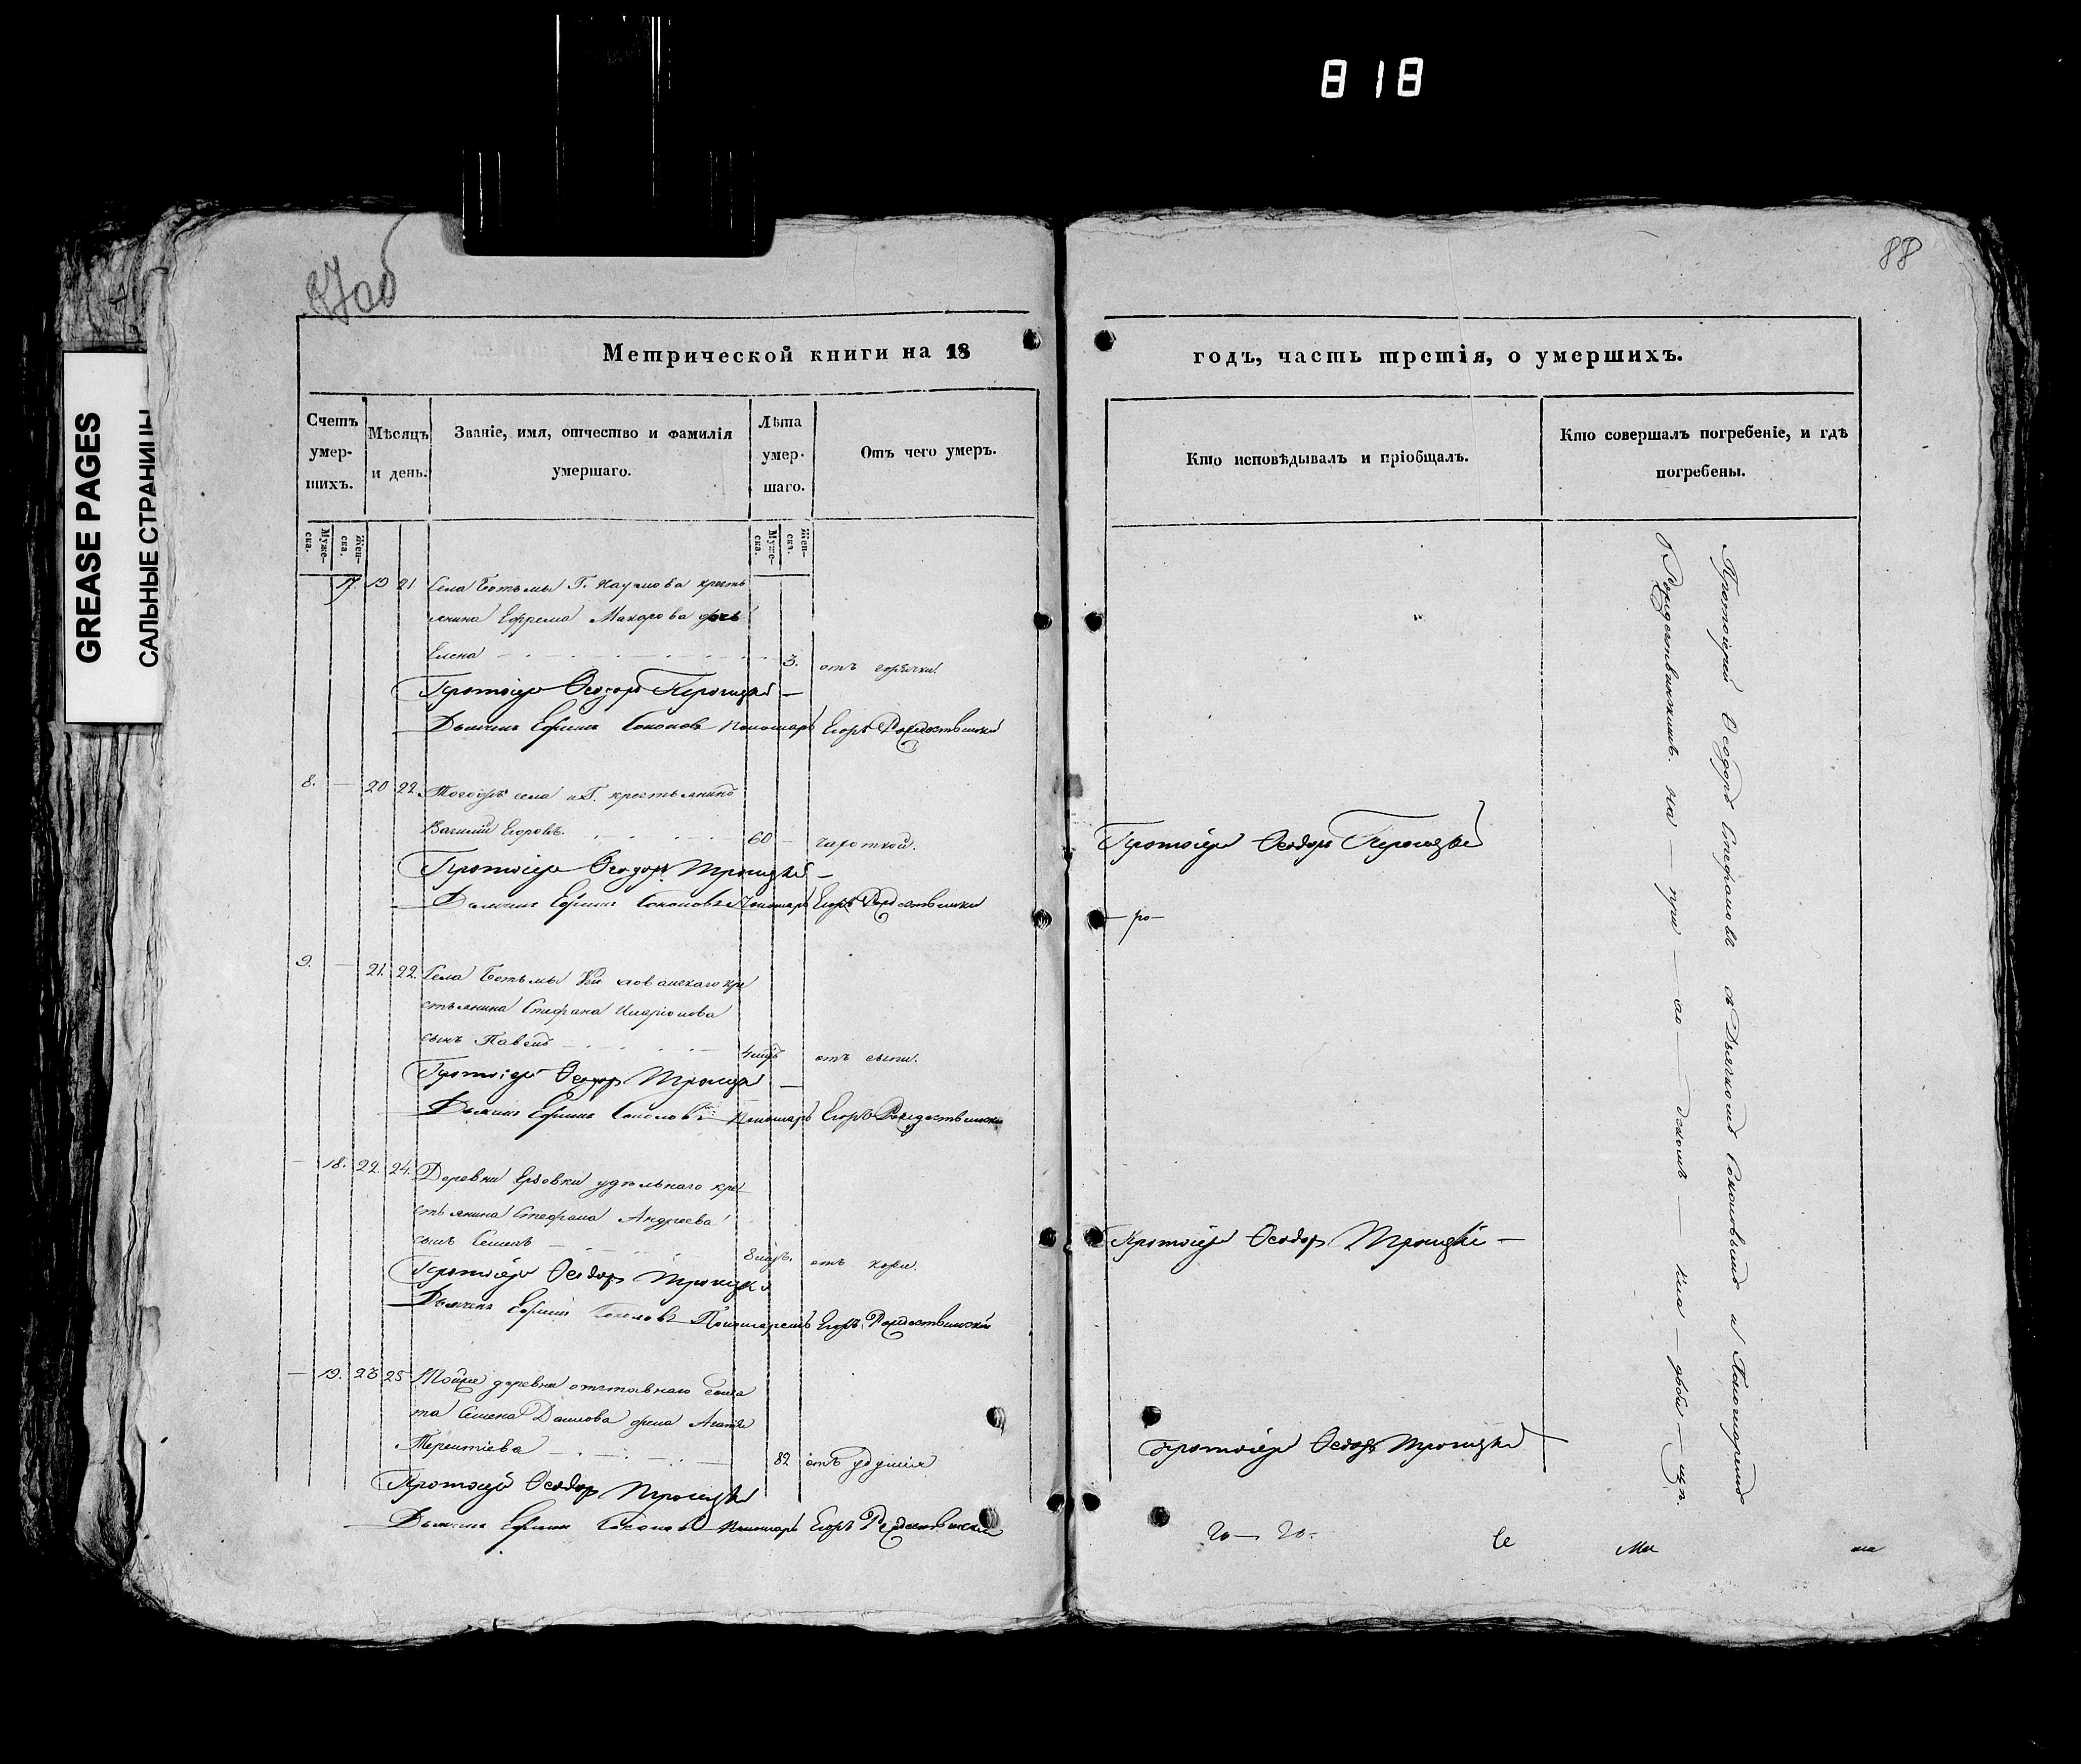 818
GREASE PAGES
САЛЬНЫЕ СТРАНИЦЫ
87об
88
Метрической книги на 18
годъ, часть третія, о умершихъ.
Счетъ умер-шихъ.
Мѣсяцъ и день.
Званіе, имя, отчество и фамилія умершаго.
Лѣта умер-шаго.
Отъ чего умеръ.
Кто исповѣдывалъ и пріобщалъ.
Кто совершалъ погребеніе, и гдѣ погребены.
Муже-ска.
Жен-ска.
Муже-ска.
Жен-ска.
17. 19 21 Села Ботьмы Г. Наумова кресть
янина Ефрема Макарова дочь
Елена 3. отъ горячки.
Протоіерей Ѳеодоръ Троицкій
Дьячекъ Ефимъ Соколовъ Пономарь Егоръ Рождественскій
8. 20 22. Тогоже села и Г. крестьянинъ
Василій Егоровъ. 60 чахоткой.
Протоіерей Ѳеодоръ Троицкій
Протоіерей Ѳеодоръ Троицкій
Дьячекъ Ефимъ Соколовъ Пономарь Егоръ Рождественскій
ро
9. 21. 22. Села Ботьмы хованскаго кре
стьянина Стефана Иларіонова
сынъ Павелъ 4 отъ сыпи.
Протоіерей Ѳеодоръ Троицкій
Дьячекъ Ефимъ Соколовъ Пономарь Егоръ Рождественскій
18. 22. 24. Деревни удѣльнаго кре
стьянина Стефана Андреева
сынъ Семенъ 8 отъ кори.
Протоіерей Ѳеодоръ Троицкій
Протоіерей Ѳеодоръ Троицкій
Дьячекъ Ефимъ Соколовъ Пономарь Егоръ Рождественскій
19. 23 25 Тойже деревни отставнаго солда
та Семена Данилова жена
Терентіева 82 отъ удушія
Протоіерей Ѳеодоръ Троицкій
Протоіерей Ѳеодоръ Троицкій
Дьячекъ Ефимъ Соколовъ Пономарь Егоръ Рождественскій
Протоіерей Ѳеодоръ Стефановъ съ Дьячкомъ Соколовымъ и Пономаремъ
Рождественскимъ. на — при — со — — — кла — дби — щѣ.